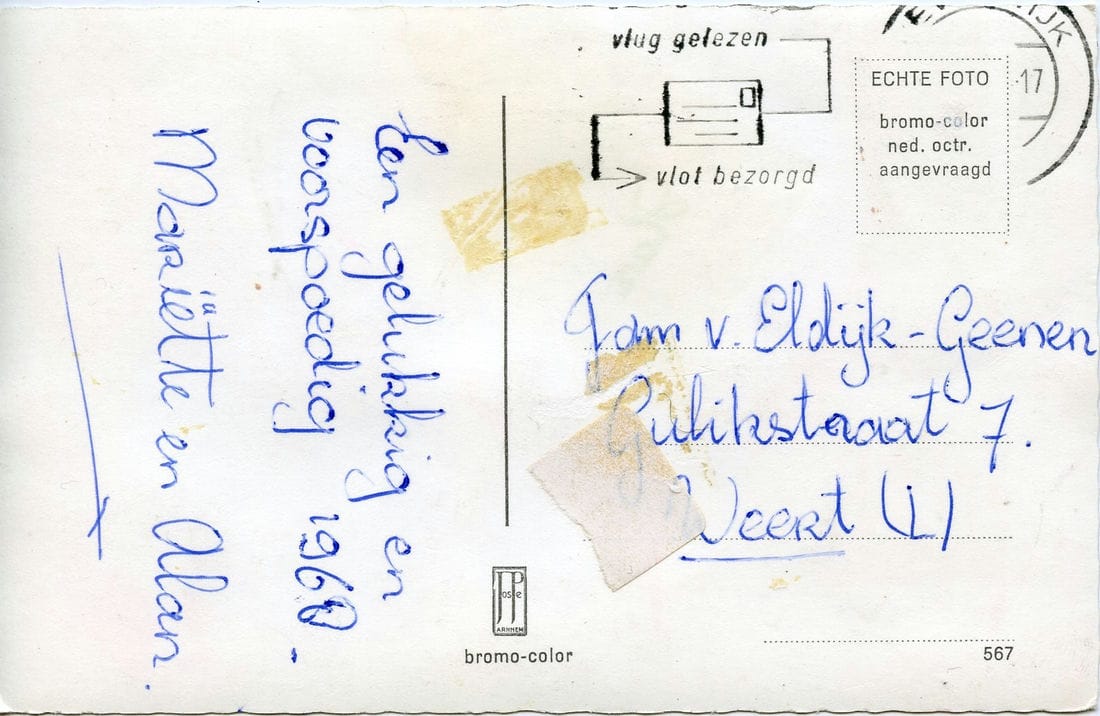 Een gelukkig en
voorspoedig
Mariëtte en Alan.
vlug gelezen
vlot bezorgd
IJK
-17
ECHTE FOTO
bromo-color
ned. octr.
aangevraagd
Fam v. Eldijk - Geenen
Gulikstraat 7.
Weert (L)
JosPe
ARNHEM
bromo-color
567